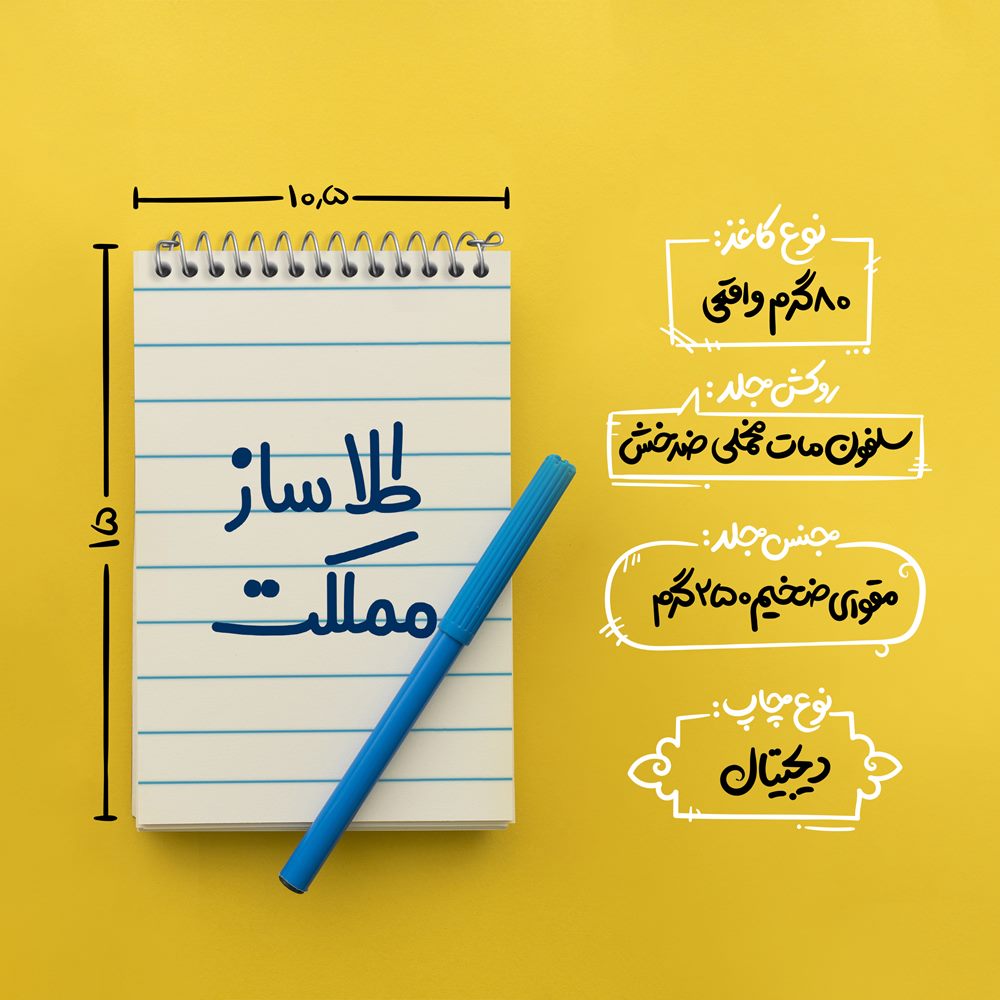 ۱۰٫۵
۱۵
طلا ساز
مملکت
نوع کاغذ:
۸۰ گرم واقعی
روکش جلد:
سلفون مات مخملی ضدخش
جنس جلد:
مقوای ضخیم ۲۵۰ گرم
نوع چاپ:
دیجیتال